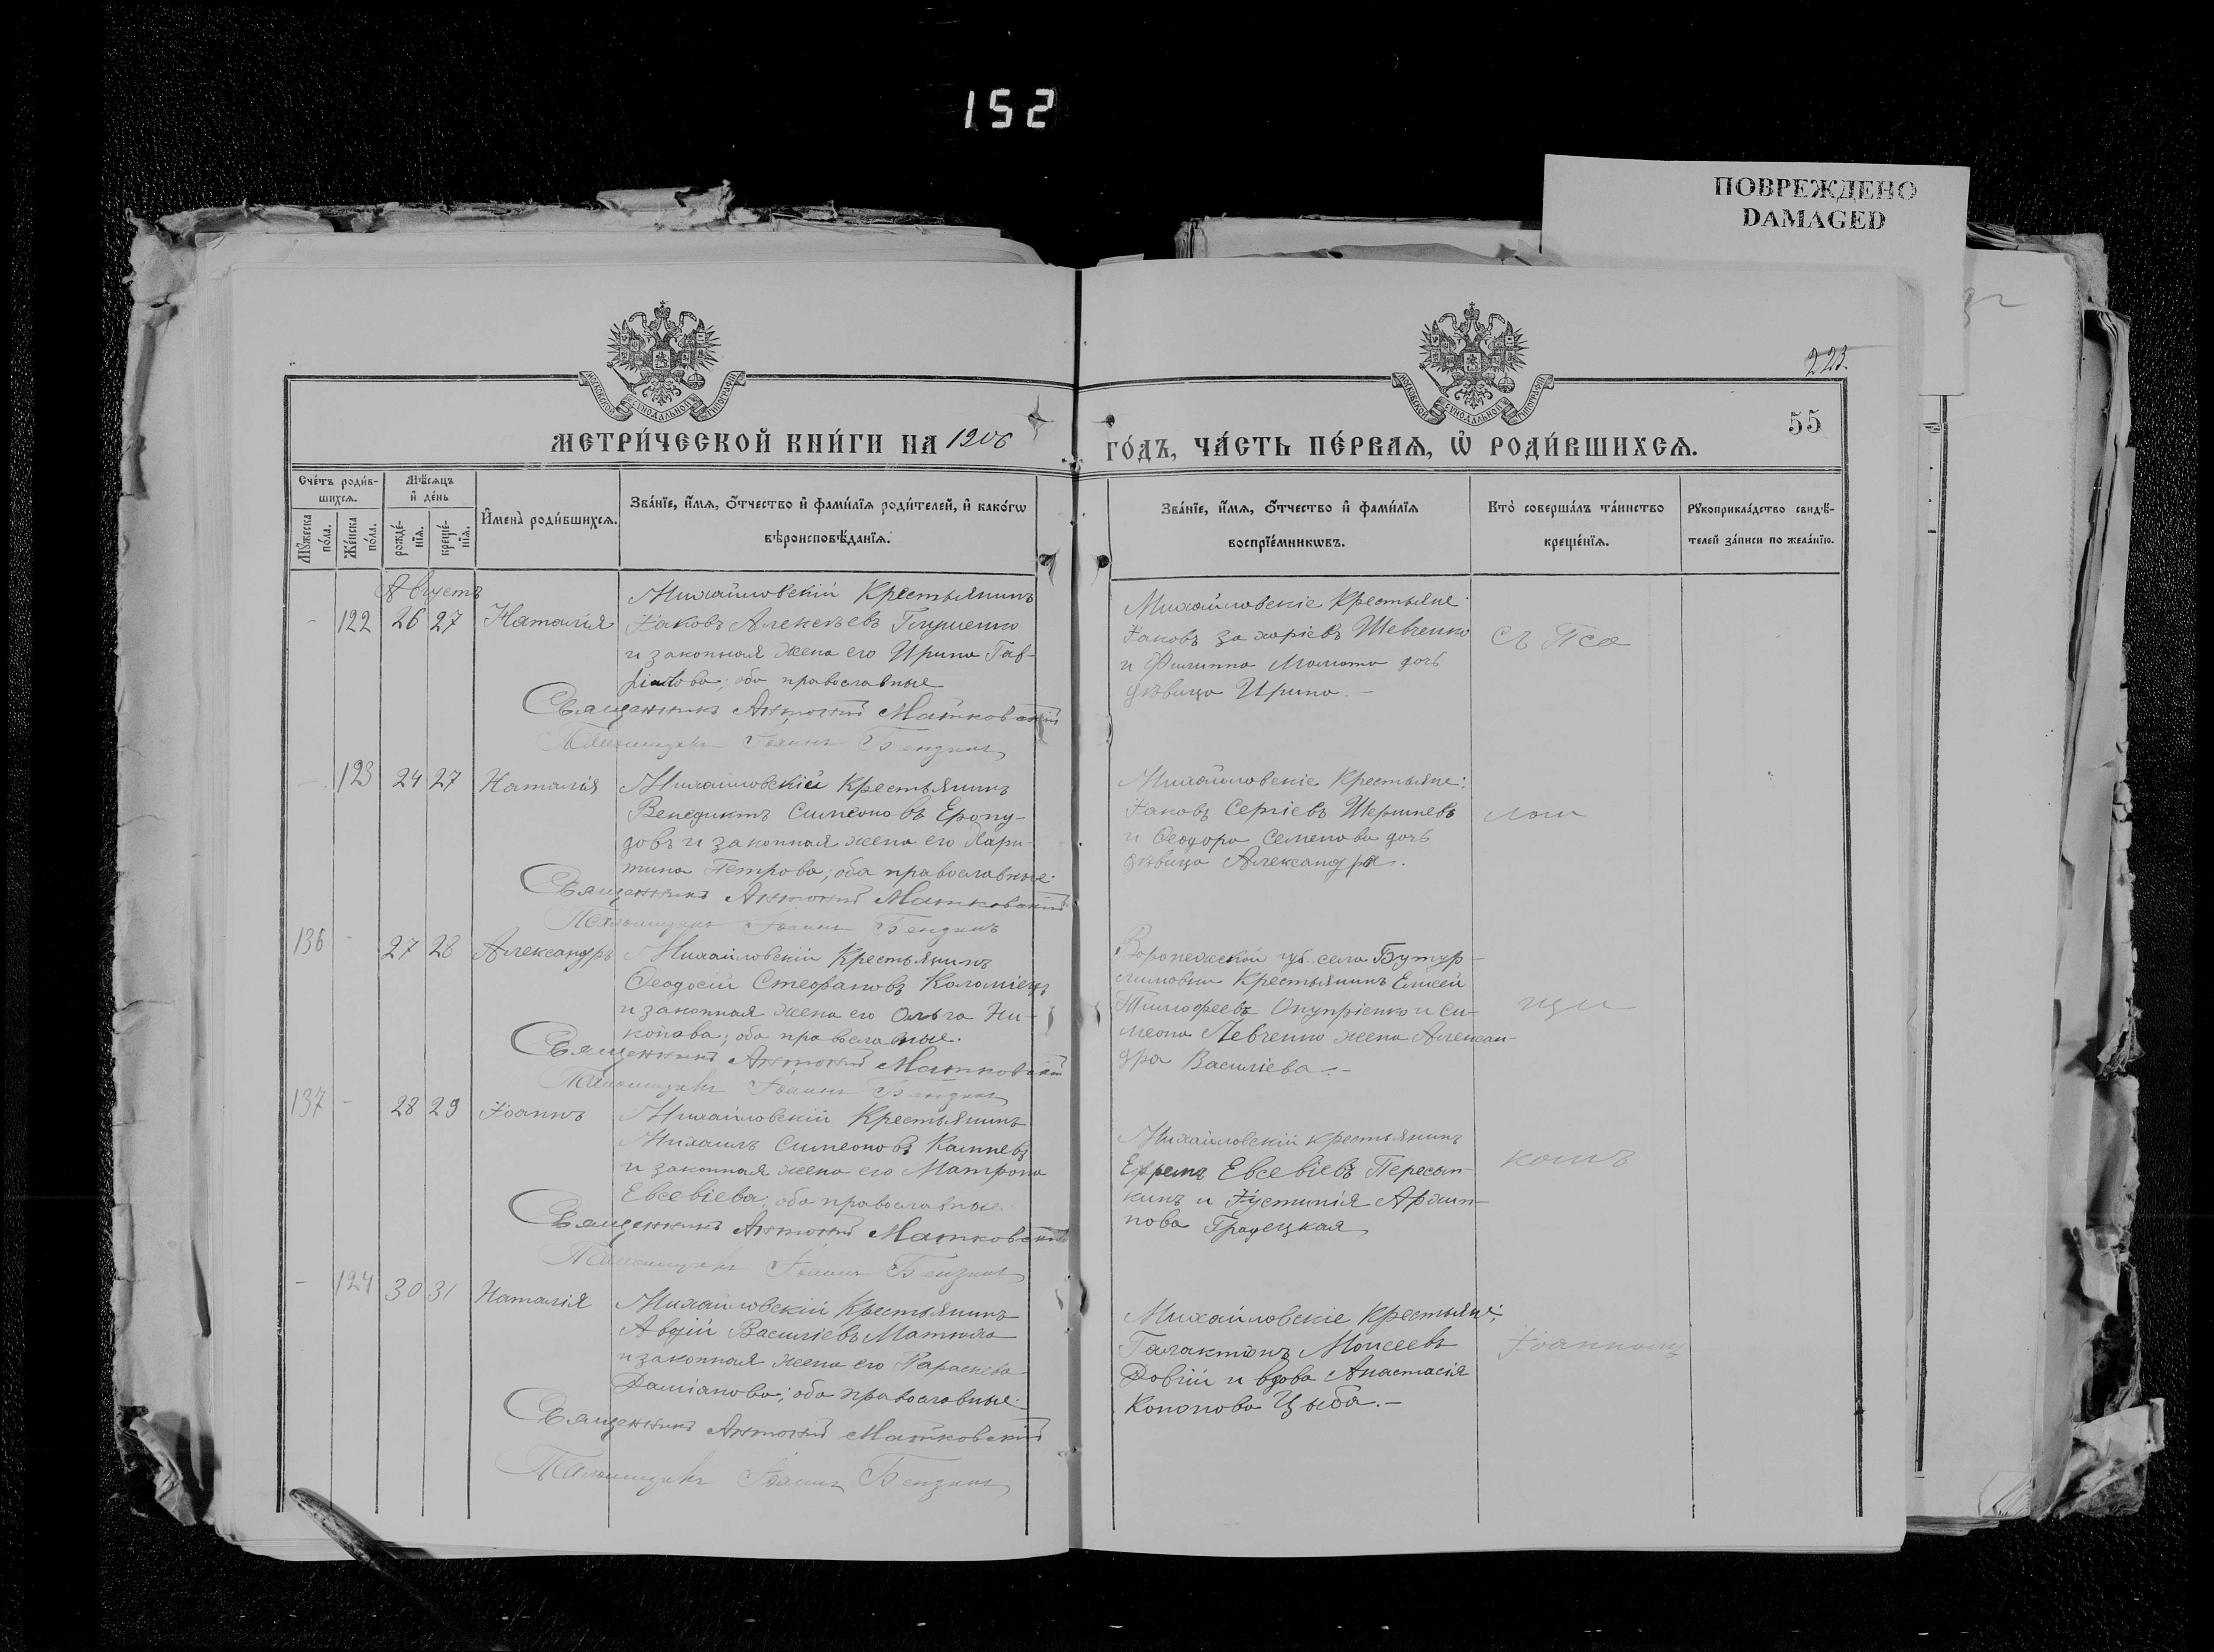 152
ПОВРЕЖДЕНО
DAMAGED
223.
55
МОСКОВСКОЙ СѴНОДАЛЬНОЙ ТИПОГРАФІИ
МОСКОВСКОЙ СѴНОДАЛЬНОЙ ТИПОГРАФІИ
МЕТРИ́ЧЕСКОЙ КНИ́ГИ НА 1906
ГО́ДЪ, ЧА́СТЬ ПЕ́РВАѦ, Ѡ҆ РОДИ́ВШИХСѦ.
Сче́тъ роди́в-
шихсѧ.
Мꙋ́жеска по́ла.
Же́нска по́ла.
Мѣ́сѧцъ
и҆ де́нь
рожде́-
нїѧ.
креще́-
нїѧ.
И҆мена̀ роди́вшихсѧ.
Зва́нїе, и҆́мѧ, ѻ҆́тчество и҆ фами́лїѧ роди́телей, и҆ како́гѡ
вѣроисповѣ́данїѧ.
Зва́нїе, и҆́мѧ, ѻ҆́тчество и҆ фами́лїѧ
воспрїе́мникѡвъ.
Кто̀ соверша́лъ та́инство
креще́нїѧ.
Рꙋкоприкла́дство свидѣ́-
телей за́писи по жела́нїю.
Августъ
- 122 26 27 Наталія
Михайловскій Крестьянинъ
Іаковъ Алексѣевъ Глущенко
и законная жена его Ирина Гав-
ріилова; оба православные
Священникъ Антоній Матковскій
Псаломщикъ Іоаннъ
Михайловскіе Крестьяне:
Іаковъ Захаріевъ Шевченко
и Филиппа дочь
дѣвица Ирина.-
Съ Пса
- 123 24 27 Наталія
Михайловскій Крестьянинъ
Венедиктъ Симеоновъ
и законная жена его Хари-
тина Петрова; оба православные.
Священникъ Антоній Матковскій
Псаломщикъ Іоаннъ
Михайловскіе Крестьяне:
Іаковъ Сергіевъ
и Ѳеодора Семенова дочь
дѣвица Александра.
лом
136 - 27 28 Александръ
Михайловскій Крестьянинъ
Ѳеодосій Стефановъ Коломіецъ
и законная жена его Ольга Ни-
конова; оба православные.
Священникъ Антоній Матковскій
Псаломщикъ Іоаннъ
Воронежской губ. села Бутур-
линовки Крестьянинъ Елисей
Тимофеевъ Онупріенко и Си-
меона Левченко жена Алексан-
дра Васильева.-
щи
137 - 28 29 Іоаннъ
Михайловскій Крестьянинъ
Михаилъ Симеоновъ
и законная жена его Матрона
Евсевіева; оба православные.
Священникъ Антоній Матковскій
Псаломщикъ Іоаннъ
Михайловскій крестьянинъ
Ефремъ Евсевіевъ Пересып-
кинъ и Іустинія Архип-
пова Градецкая
комъ
- 124 30 31 Наталія
Михайловскій Крестьянинъ
Авдій Василіевъ Матюха
и законная жена его Параскева
Даміанова; оба православные.
Священникъ Антоній Матковскій
Псаломщикъ Іоаннъ
Михайловскіе Крестьяне:
Галактіонъ Моисеевъ
Довгій и вдова Анастасія
Кононова Цыба.-
Іоанномъ